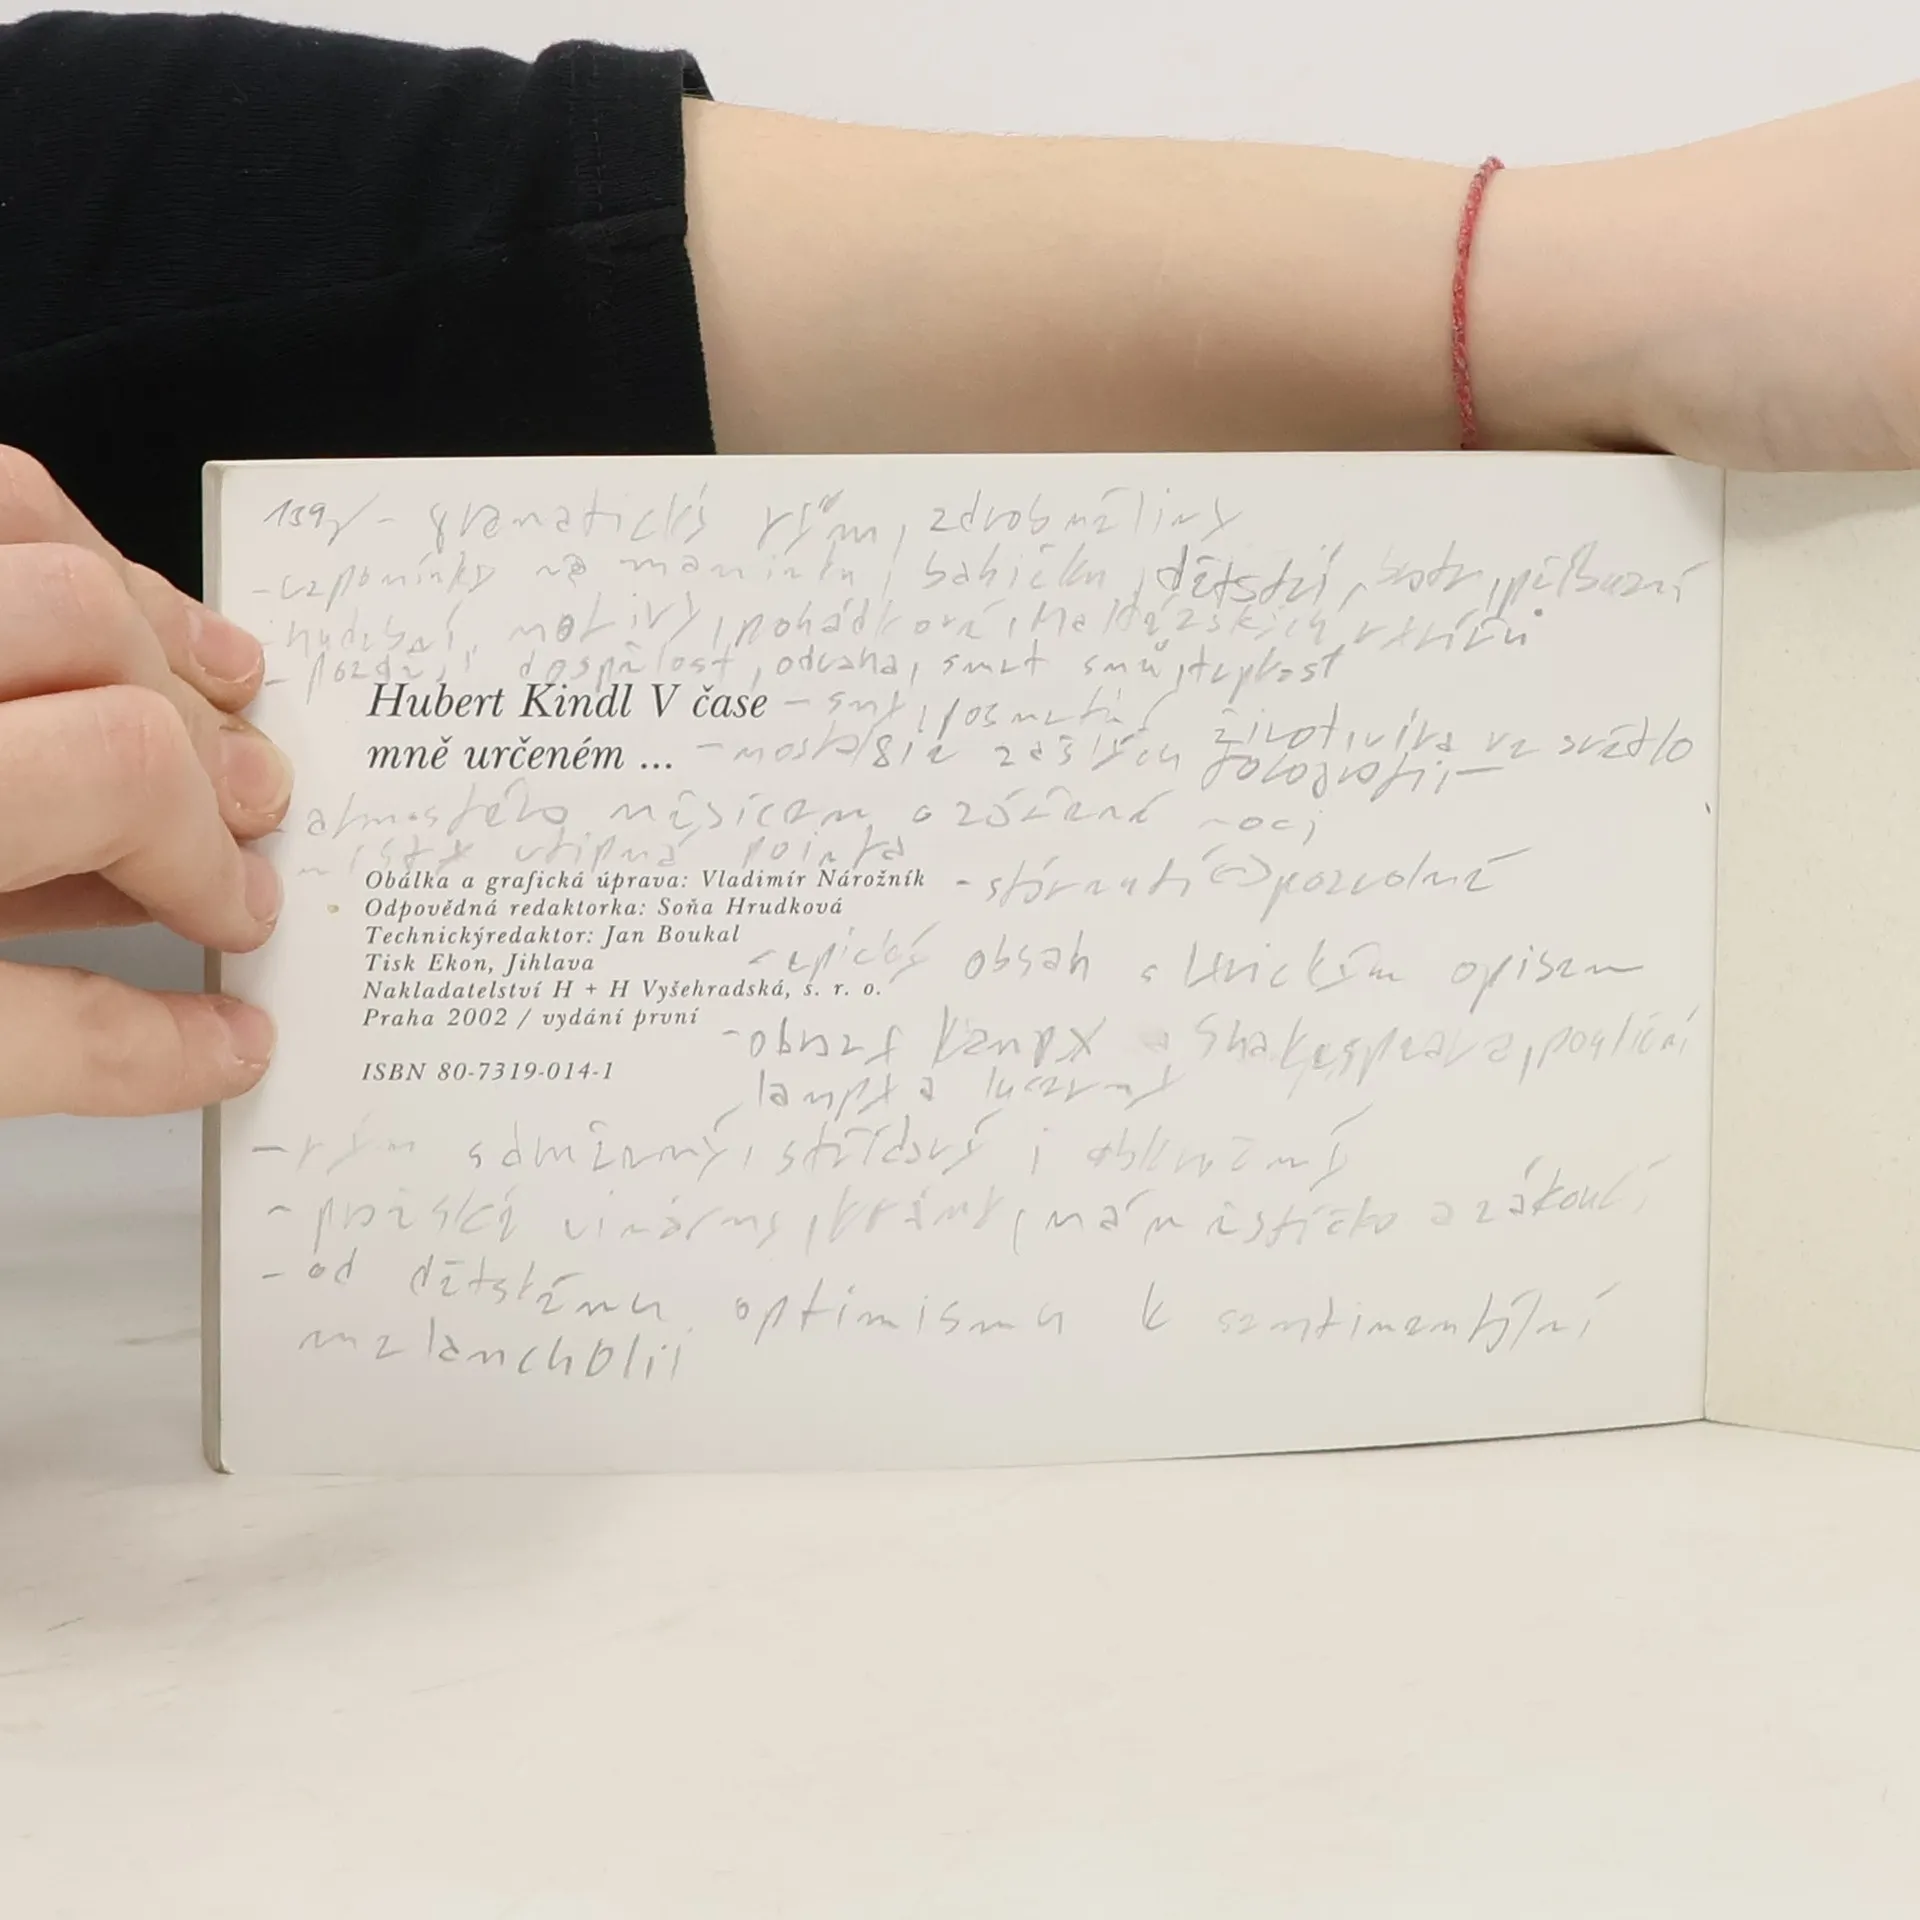 139,- - gramatický rým, zdrobněliny
- vzpomínky na maminku, babičku, dětství, příbuzní
- hudební motivy, pohádkové,
- později dospělost, odvaha, smrt snů, teplost
Hubert Kindl V čase - sny,
mně určeném ... - nostalgie zašlých fotografií - života, víra ve světlo
- atmosféra měsícem ozářené noci
- místy vtipná pointa
Obálka a grafická úprava: Vladimír Nárožník - stárnutí <-> pozvolné
Odpovědná redaktorka: Soňa Hrudková
Technickýredaktor: Jan Boukal
Tisk Ekon, Jihlava - epický obsah s lyrickým opisem
Nakladatelství H + H Vyšehradská, s. r. o.
Praha 2002 / vydání první
- obraz Kampy a Shakespeara, pouliční
ISBN 80-7319-014-1
lampy a lucerny
- rým sdružený, střídavý i obkročný
- pražské vinárny, krámy, náměstíčko a zákoutí
- od dětského optimismu k sentimentální
melancholii